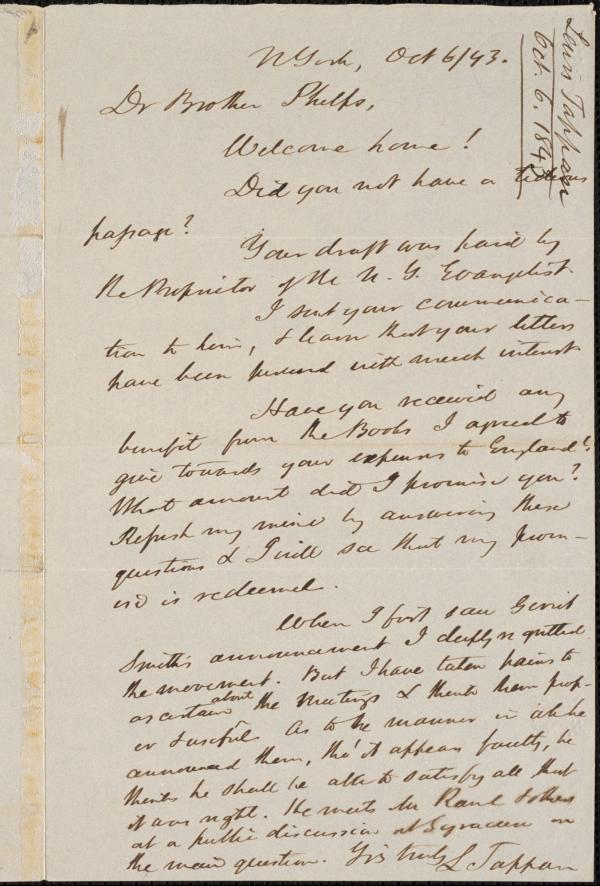 Lewis Tappan
Oct. 6. 1843
N York, Oct 6/43.
Dr Brother Phelps,
Welcome home!
Did you not have a tedious
passage?
Your draft was paid by
the Proprietor of the N. Y. Evangelist.
I sent your communica-
tion to him, & learn that your letters
have been perused with much interest
Have you received any
benefit from the Books I agreed to
give towards your expenses to England?
What amount did I promise you?
Refresh my mind by answering these
questions & I will see that my prom-
ise is redeemed.
When I first saw Gerrit
Smith's announcement I deeply regretted
the movement. But I have taken pains to
ascertain about the meetings & think them prop-
er & useful. As to the manner in wh. he
announced them, tho' it appears faulty, he
thinks he shall be able to satisfy all that
it was right. He meets Mr Rand & others
at a public discussion at Syracuse on
the main question. Yrs truly L Tappan